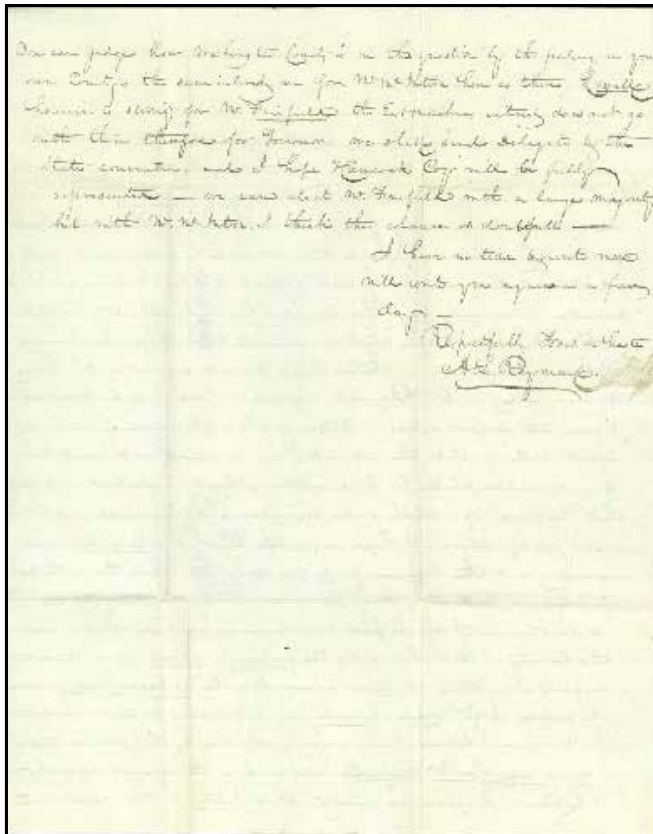 One can judge how Washington County is on the question by the feeling in your
own County the same intirely are for Mr McKetor here as there
is strong for Mr Fairfield the intirely does not go
with them therefore for Governor we shall send Delegates to the
State convention, and I hope Hancock Coy will be fully
represented — we can elect Mr Fairfield with a large majority
but with Mr McKetor I think the chance is doubtfull —
I have no time to write more
will write you again in a few
days —
Respectfully Yours in haste
A L Raymond.